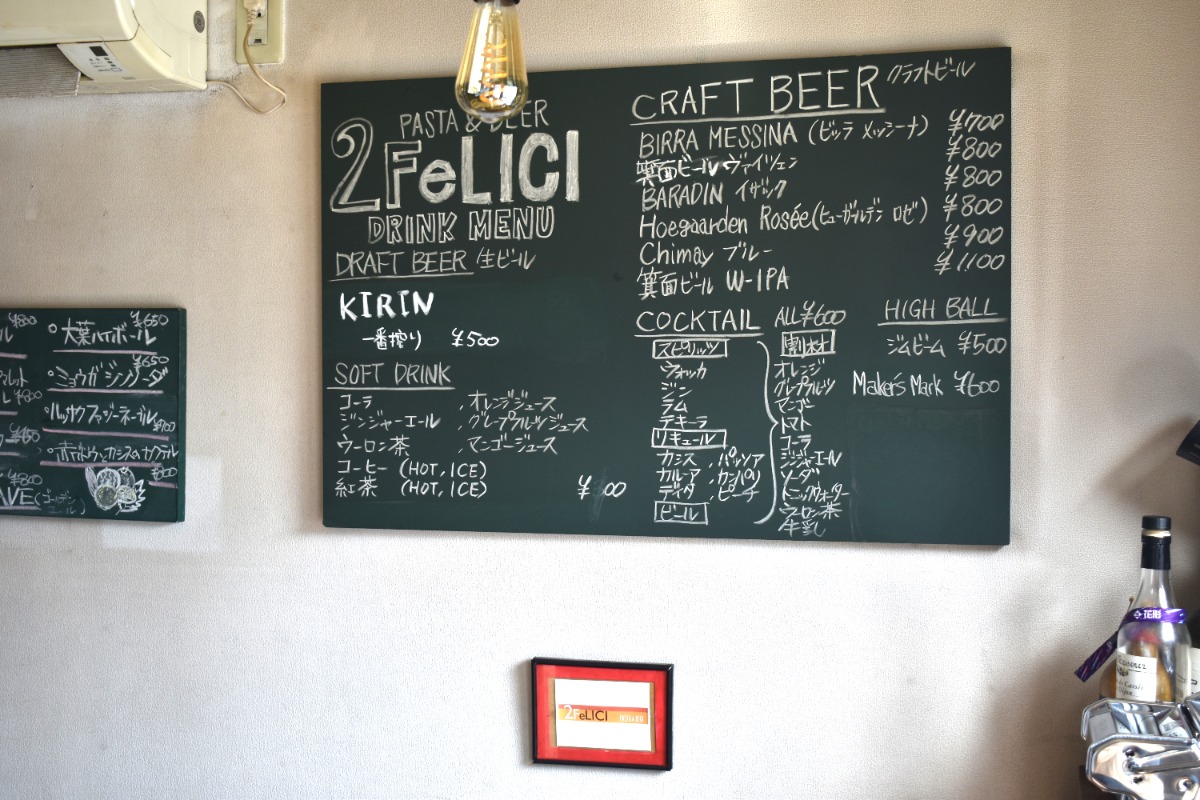 PASTA & BEER
2FeLICI
DRINK MENU
DRAFT BEER 生ビール
KIRIN
一番搾り ¥500
SOFT DRINK
コーラ
ジンジャーエール
ウーロン茶
コーヒー (HOT, ICE)
紅茶 (HOT, ICE)
.オレンジジュース
.グレープフルーツジュース
.マンゴージュース
CRAFT BEER クラフトビール
BIRRA MESSINA (ビッラ メッシーナ) ¥700
箕面ビール ヴァイツェン ¥800
BARADIN イザック ¥800
Hoegaarden Rosée(ヒューガルデン ロゼ) ¥800
Chimay ブルー ¥900
箕面ビール W-IPA ¥1,100
COCKTAIL ALL¥600
スピリッツ
ウォッカ
ジン
ラム
テキーラ
リキュール
カシス .パッソア
カルーア .カンパリ
ディタ .ピーチ
ビール
割材
オレンジ
グレプフルーツ
マンゴー
トマト
コーラ
ジンジャーエール
ソーダ
トニックウォーター
ウーロン茶
牛乳
HIGH BALL
ジムビーム ¥500
Maker's Mark ¥600
¥650
大葉ハイボール
¥650
ミョウガジンソーダ
¥800
2FeLICI